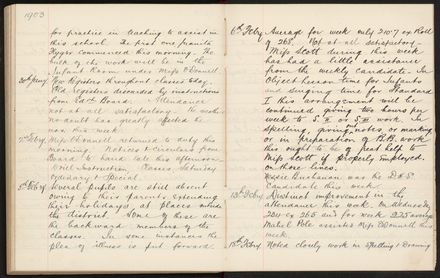 1903
for practice in teaching to assist in
this school. The first one Juanita
Hyges commenced this morning. The
bulk of the work will be in the
Infant Room under Miss O'Donnell
30th Jany New Registers brought classes today
Old registers discarded by instructions
from Ed'n Board. Attendance
not at all satisfactory. The
no doubt has greatly affected the
nos. this week.
2nd Febry Miss O'Donnell returned to duty this
morning. Notices & Circulars from
Board to hand late this afternoon
with Instruction Classes Saturday
Ordinary & Special.
5th Febry Several pupils are still absent
owing to their parents extending
their holidays, at places outside
the district. Some of these are
the backward members of the
classes. In some instances the
plea of illness is put forward.
6th Febry Average for week only 210.7 ex Roll
of 268. Not at all satisfactory.
Miss Scott during this week
has had a little assistance
from the weekly candidate. In
Object Lesson time for Infants
and singing time for Standard
I this arrangement will be
continued giving two hours per
week to S. II or S. III work. In
spelling, giving notes or marking
or in preparation of work
this ought to be of great help to
Miss Scott if properly employed
on those lines.
Buchanan was the
Candidate this week.
13th Febry Distinct improvement in the
attendance this week. On Wednesday
250 ex 265 and for week 225 average
Mabel Pole assisted Miss O'Donnell this
week.
18th Febry Noted closely work in Spelling & Drawing